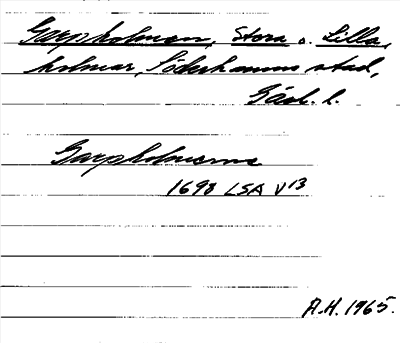 Garpholmen, Stora o. Lilla,
holmar, Söderhamns stad,
Gäst. l.
Garpholmarna
1698 LSA V13
A.H. 1965.